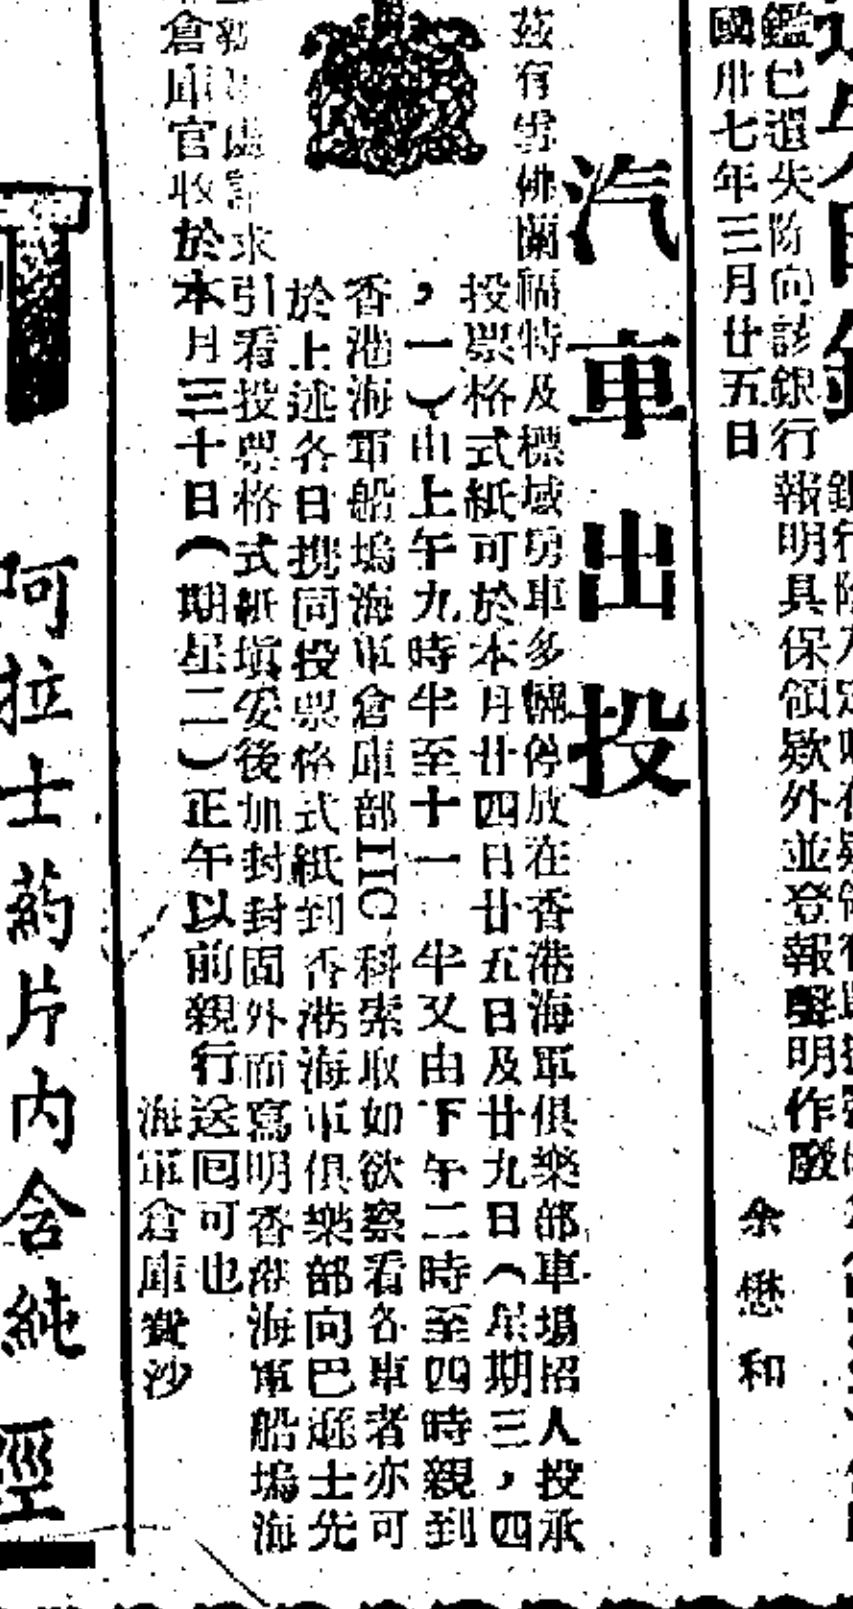 銀行
鑑已遺失除向該銀行
報明具保領欵外並登報聲明作廢
國卅七年三月廿五日
余懋和
汽車出投
茲有雪佛蘭福特及標域房車多輛停放在香港海軍俱樂部車場招人投承
投票格式紙可於本月廿四日廿五日及廿九日（星期三，四
，一）由上午九時半至十一 半又由下午二時至四時親到
香港海軍船塢海軍倉庫部IIC科索取如欲察看各車者亦可
於上述各日携同投票格式紙到香港海軍俱樂部向巴遜士先
求引看投票格式紙塡妥後加封封固外面寫明香港海軍船塢海
倉庫官收於本月三十日（期星二）正午以前親行送囘可也
海軍倉庫費沙
阿拉士葯片内含純
經